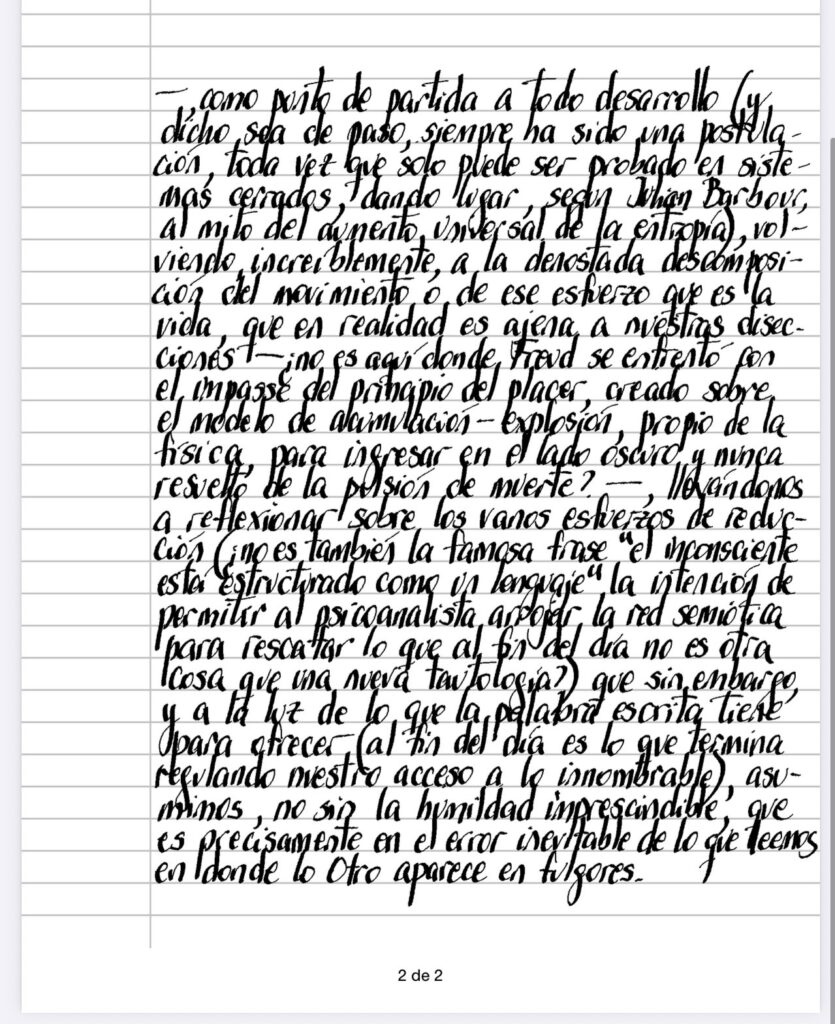 —, como punto de partida a todo desarrollo (y
dicho sea de paso, siempre ha sido una postula-
ción, toda vez que solo puede ser probado en siste-
mas cerrados, dando lugar, según Julian Barbour,
al mito del aumento universal de la entropía), vol-
viendo, increíblemente, a la denostada descomposi-
ción del movimiento o de ese esfuerzo que es la
vida, que en realidad es ajena a nuestras disec-
ciones —¿no es aquí donde Freud se enfrentó con
el impasse del principio del placer, creado sobre
el modelo de acumulación-explosión, propio de la
física, para ingresar en el lado oscuro y nunca
resuelto de la pulsión de muerte? —, llevándonos
a reflexionar sobre los vanos esfuerzos de reduc-
ción (¿no es también la famosa frase "el inconsciente
está estructurado como un lenguaje" la intención de
permitir al psicoanalista arrojar la red semiótica
para rescatar lo que al fin del día no es otra
cosa que una nueva tautología?) que sin embargo,
y a la luz de lo que la palabra escrita tiene
para ofrecer (al fin del día es lo que termina
regulando nuestro acceso a lo innombrable), asu-
mimos, no sin la humildad imprescindible, que
es precisamente en el error inevitable de lo que leemos
en donde lo Otro aparece en fulgores.
2 de 2